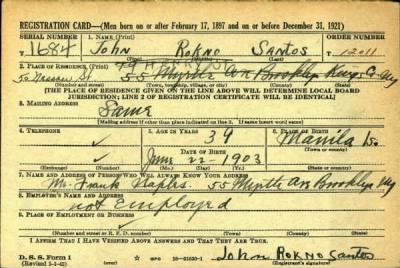 REGISTRATION CARD—(Men born on or after February 17, 1897 and on or before December 31, 1921)
SERIAL NUMBER 1. NAME (Print) ORDER NUMBER
1684 John ROKNO Santos 12011
(First) (Middle) (Last)
2. PLACE OF RESIDENCE (Print)
50 Nassau St 55 Myrtle Av Brooklyn Kings Co NY
(Number and street) (Town, township, village, or city) (County) (State)
[THE PLACE OF RESIDENCE GIVEN ON THE LINE ABOVE WILL DETERMINE LOCAL BOARD
JURISDICTION; LINE 2 OF REGISTRATION CERTIFICATE WILL BE IDENTICAL]
3. MAILING ADDRESS
Same
[Mailing address if other than place indicated on line 2. If same insert word same]
4. TELEPHONE 5. AGE IN YEARS 6. PLACE OF BIRTH
39 Manila
DATE OF BIRTH (Town or county)
June 22 - 1903
(Exchange) (Number) (Mo.) (Day) (Yr.) (State or country)
7. NAME AND ADDRESS OF PERSON WHO WILL ALWAYS KNOW YOUR ADDRESS
Mr. Frank Naples 55 Myrtle Av Brooklyn NY
8. EMPLOYER'S NAME AND ADDRESS
not Employed
9. PLACE OF EMPLOYMENT OR BUSINESS
(Number and street or R. F. D. number) (Town) (County) (State)
I AFFIRM THAT I HAVE VERIFIED ABOVE ANSWERS AND THAT THEY ARE TRUE.
D. S. S. Form 1 GPO 16—21630-1 John ROKNO Santos
(Revised 5-1-42) (Registrant's signature)